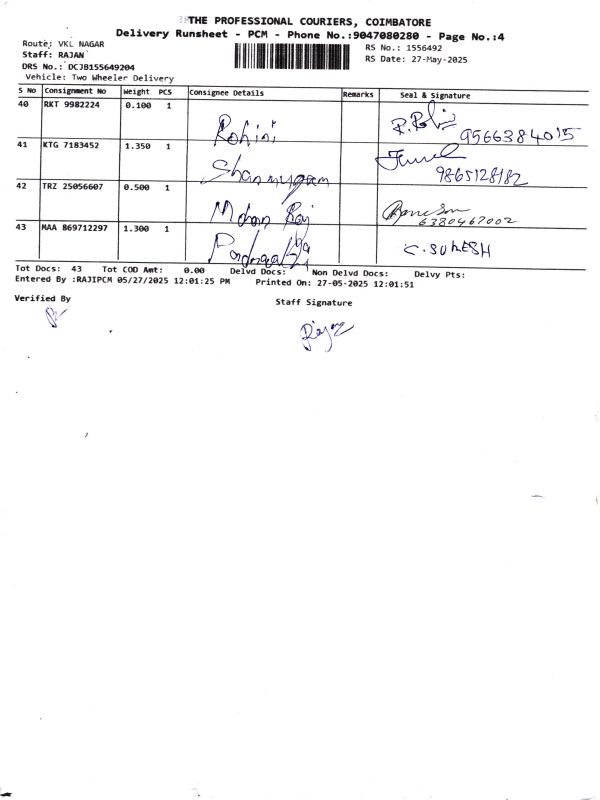 THE PROFESSIONAL COURIERS, COIMBATORE
Delivery Runsheet - PCM - Phone No.:9047080280 - Page No.:4
Route: VKL NAGAR
RS No.: 1556492
Staff: RAJAN
RS Date: 27-May-2025
DRS No.: DCJB155649204
Vehicle: Two Wheeler Delivery
S No Consignment No Weight PCS Consignee Details Remarks Seal & Signature
40 RKT 9982224 0.100 1
Rohini 9566384015
41 KTG 7183452 1.350 1
Shanmugam 9865128182
42 TRZ 25056607 0.500 1
Mohan Raj 6380467002
43 MAA 869712297 1.300 1
C. SURESH
Tot Docs: 43 Tot COD Amt: 0.00 Delvd Docs: Non Delvd Docs: Delvy Pts:
Entered By :RAJIPCM 05/27/2025 12:01:25 PM Printed On: 27-05-2025 12:01:51
Verified By
Staff Signature